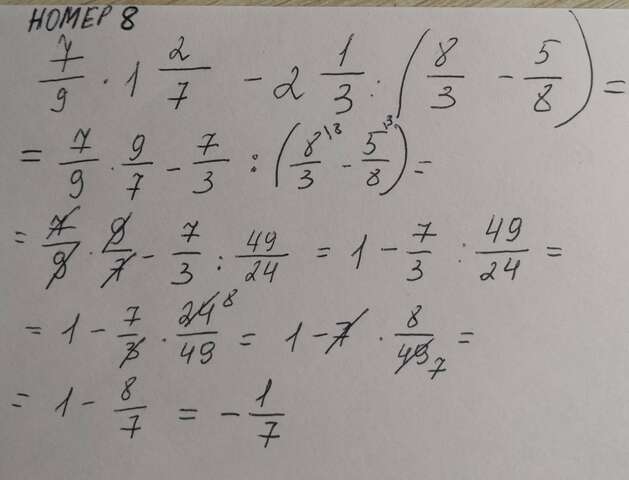 НОМЕР 8
7/9 · 1 2/7 - 2 1/3 : (8/3 - 5/8) =
= 7/9 · 9/7 - 7/3 : (8\8/3 - 5\3/8) =
= 7/9 · 9/7 - 7/3 : 49/24 = 1 - 7/3 : 49/24 =
= 1 - 7/3 · 24 8/49 = 1 - 7 · 8/49 7 =
= 1 - 8/7 = - 1/7